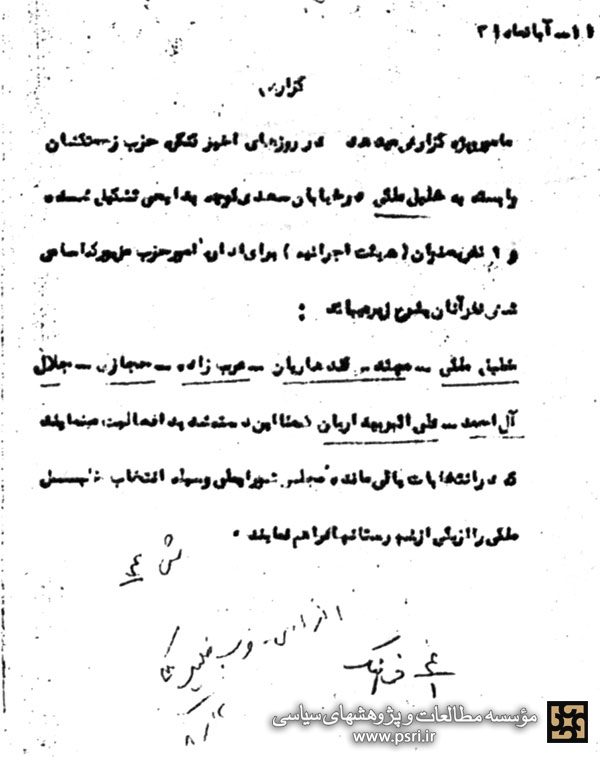 گزارش
مامور ویژه گزارش میدهد در روزهای اخیر کنگره حزب زحمتکشان
وابسته به خلیل ملکی در خیابان سعدی کوچه بدایعی تشکیل شده
و ۹ نفر بعنوان (هیئت اجرائیه) برای اداره امور حزب مزبور که اسامی
شش نفر آنان بشرح زیر میباشد :
خلیل ملکی – مهندس قندهاریان – عرب زاده – حجازی – جلال
آل احمد – علی اکبر بهداریان ضمنا این دسته شدیدا فعالیت مینمایند
که در انتخابات باقی مانده مجلس شورایملی وسیله انتخاب خلیل
ملکی را از یکی از شهرستانها فراهم نمایند .
مؤسسه مطالعات و پژوهشهای سیاسی
www.psri.ir